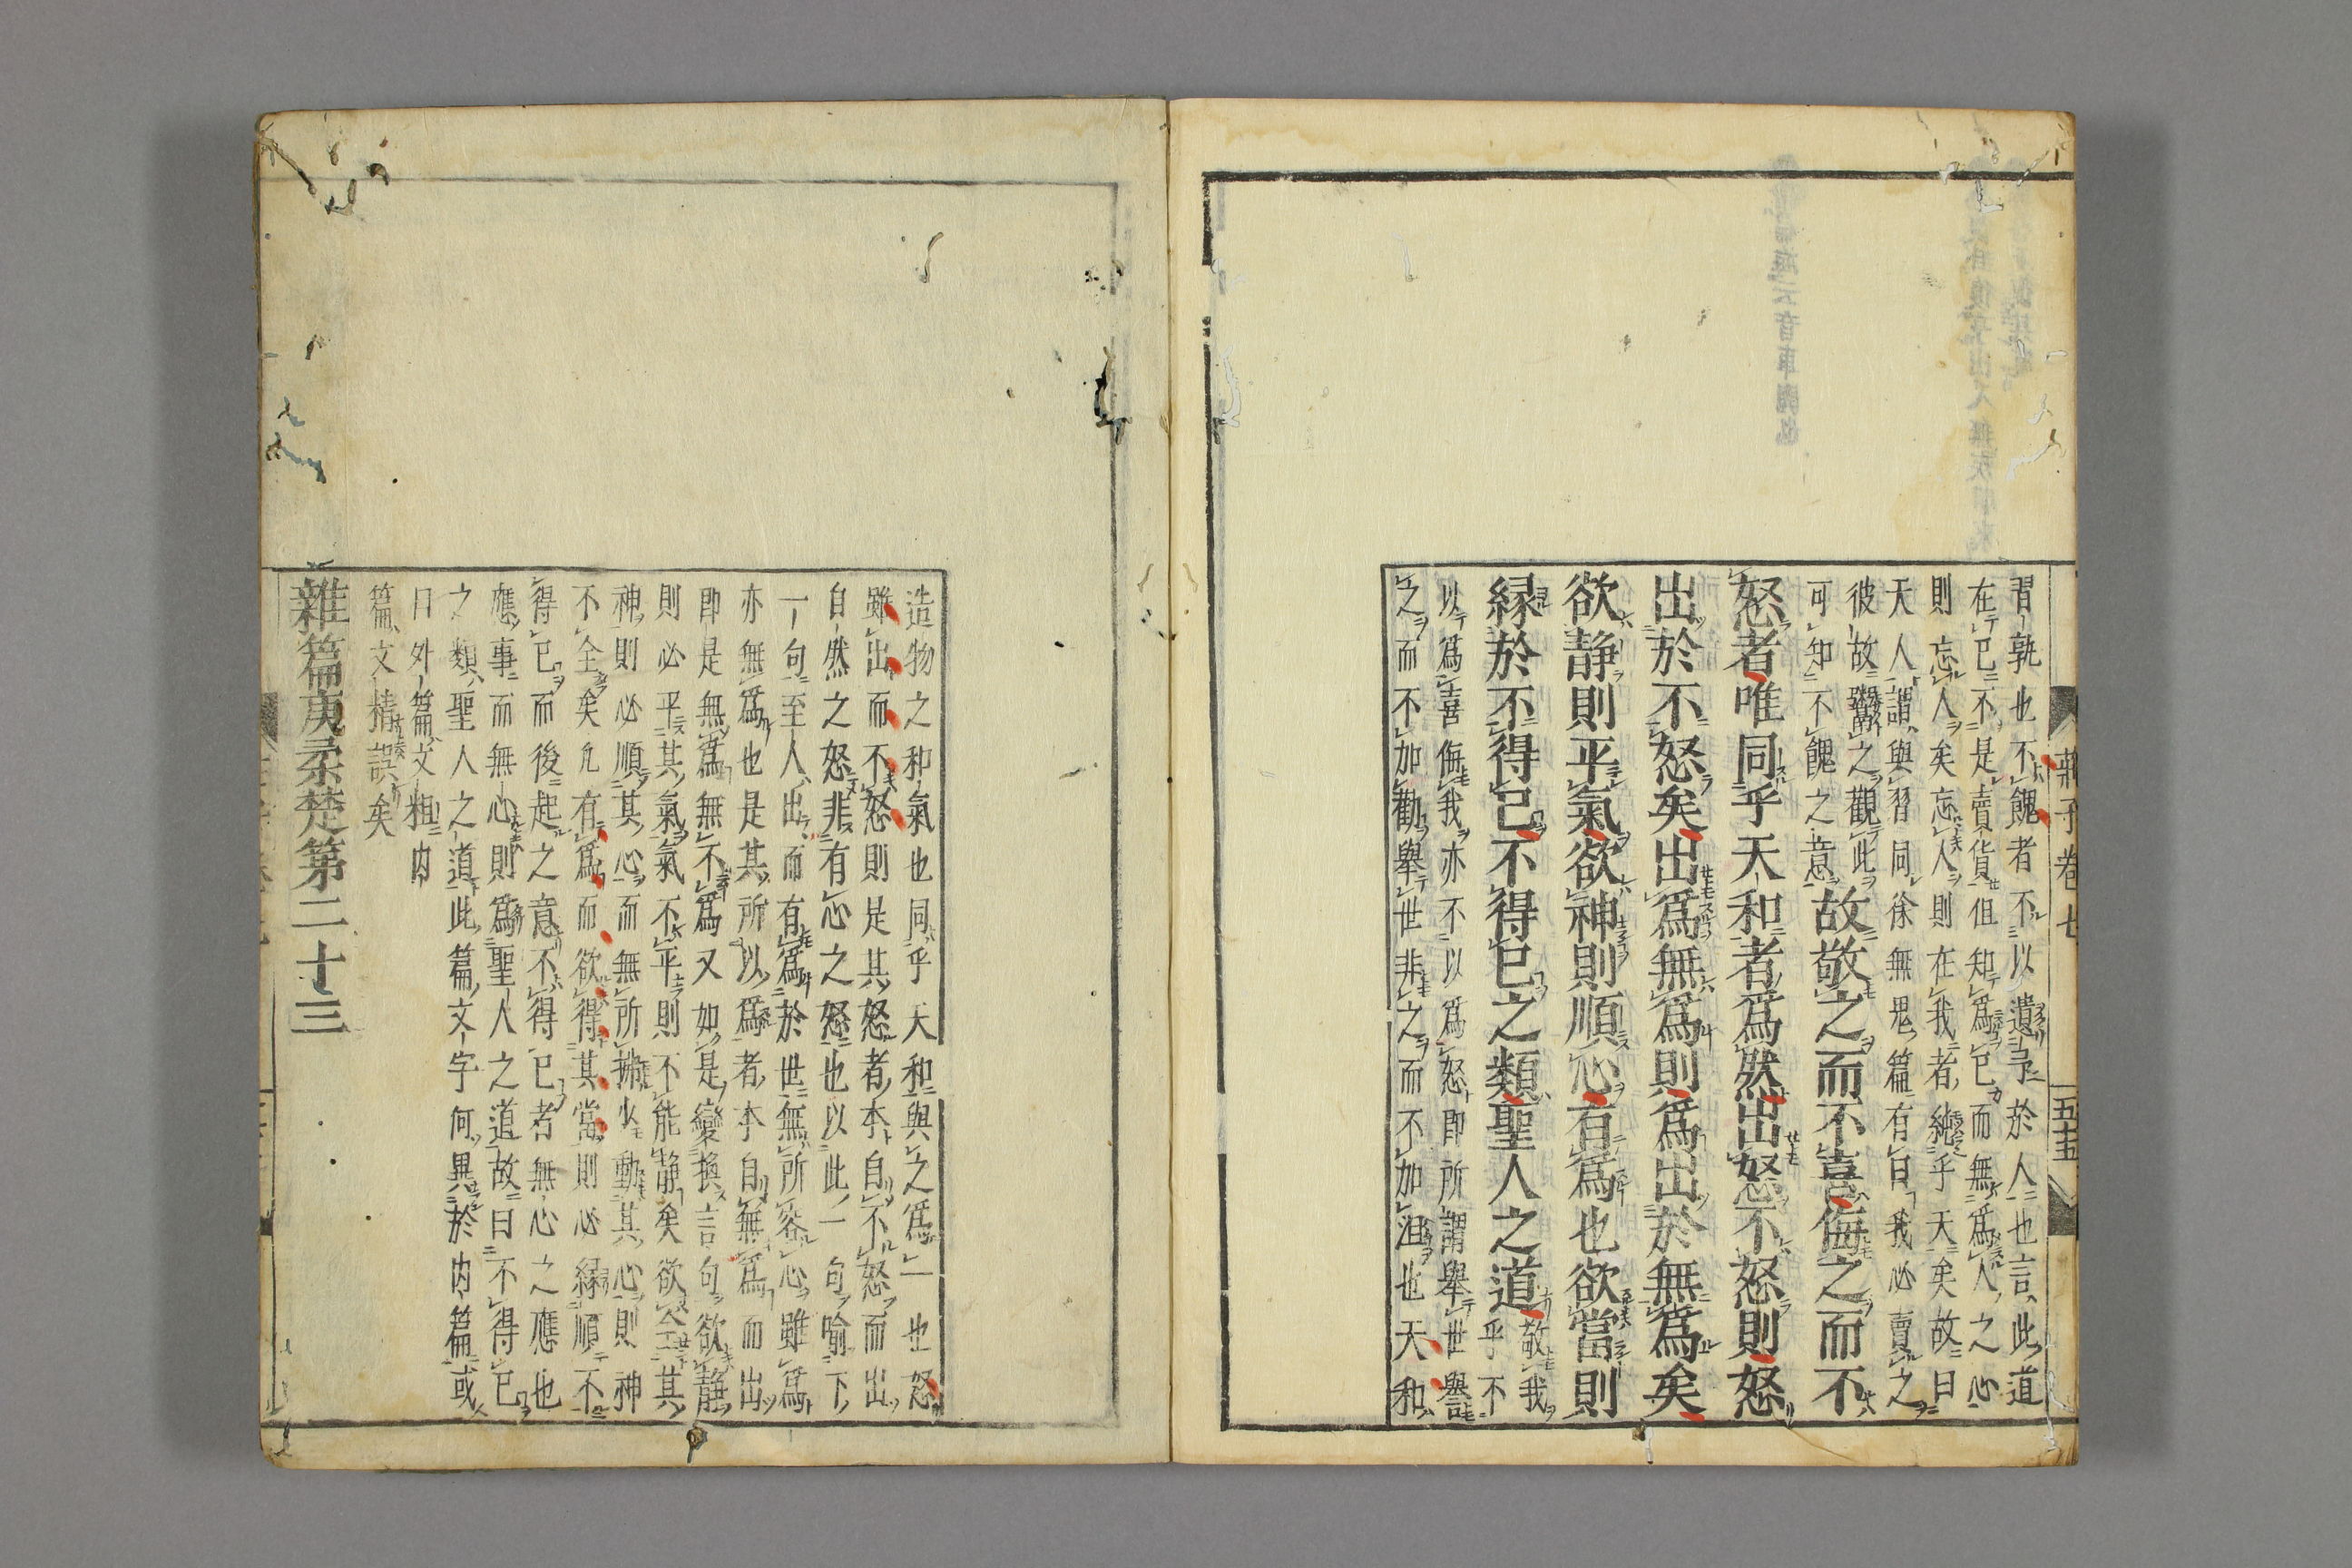 習孰也不餽者不以遺予於人也言此道
在已不是賣貨但知爲已而無爲人之心
則忘人矣忘人則在我者純乎天矣故曰
天人謂與習同徐無鬼篇有曰我必賣之
彼故鬻之觀此
可知不餽之意故敬之而不喜侮之而不
怒者唯同乎天和者爲然出怒不怒則怒
出於不怒矣出爲無爲則爲出於無爲矣
欲静則平氣欲神則順心有爲也欲當則
緣於不得已不得已之類聖人之道敬我
乎不
以爲喜侮我亦不以爲怒即所謂舉世譽
之而不加勸舉世非之而不加沮也天和
莊子卷七
五十五
造物之和氣也同乎天和與之爲一也怒
雖出而不怒則是其怒者本自不怒而出
自然之怒非有心之怒也以此一句喻下
一句至人出而有爲於世無所容心雖爲
亦無爲也是其所以爲者本自無爲而出
即是無爲無不爲又如是變換言句欲静
則必平其氣氣不平則不能静矣欲全其
神則必順其心而無所拂少動其心則神
不全矣凡有爲而欲得其當則必緣順不
得已而後起之意不得已者無心之應也
應事而無心則爲聖人之道故曰不得已
之類聖人之道此篇文字何異於内篇或
曰外篇文粗内
篇文精誤矣
雜篇庚桑楚第二十三